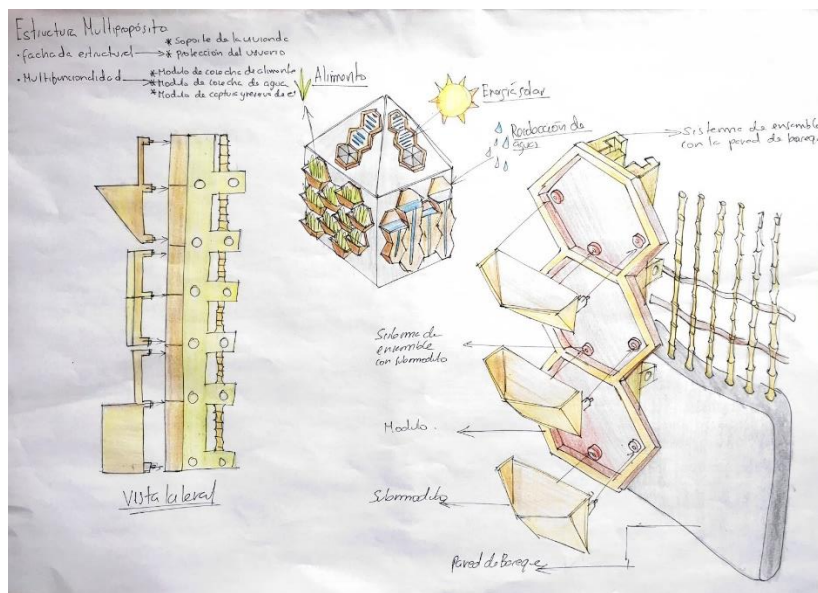 Estructura Multipropósito
• fachada estructural → * Soporte de la vivienda
* protección del usuario
• Multifuncionalidad → * Modulo de cosecha de alimento
* Modulo de cosecha de agua
* Modulo de captua y reserva de
Alimento
Energía solar
de
agua
Sistema de ensamble
con la pared de
Sistema de
ensamble
con submodulo
Modulo.
Submodulo
Vista lateral
Pared de Bareque